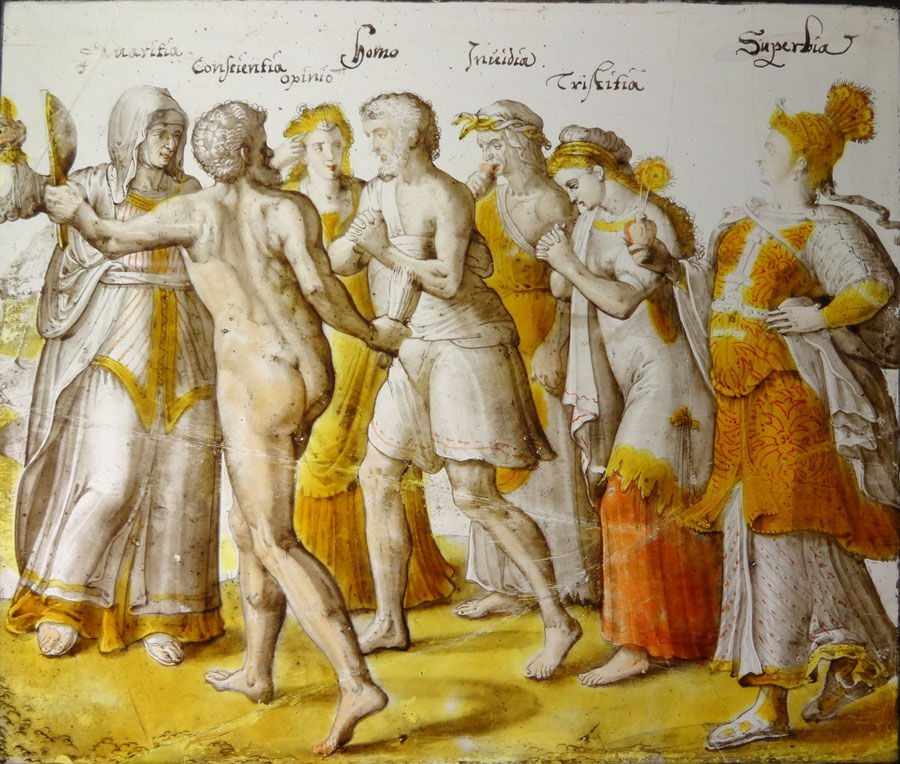 Auaritia
Conscientia
opinio
homo
Inuidia
Tristitia
Superbia